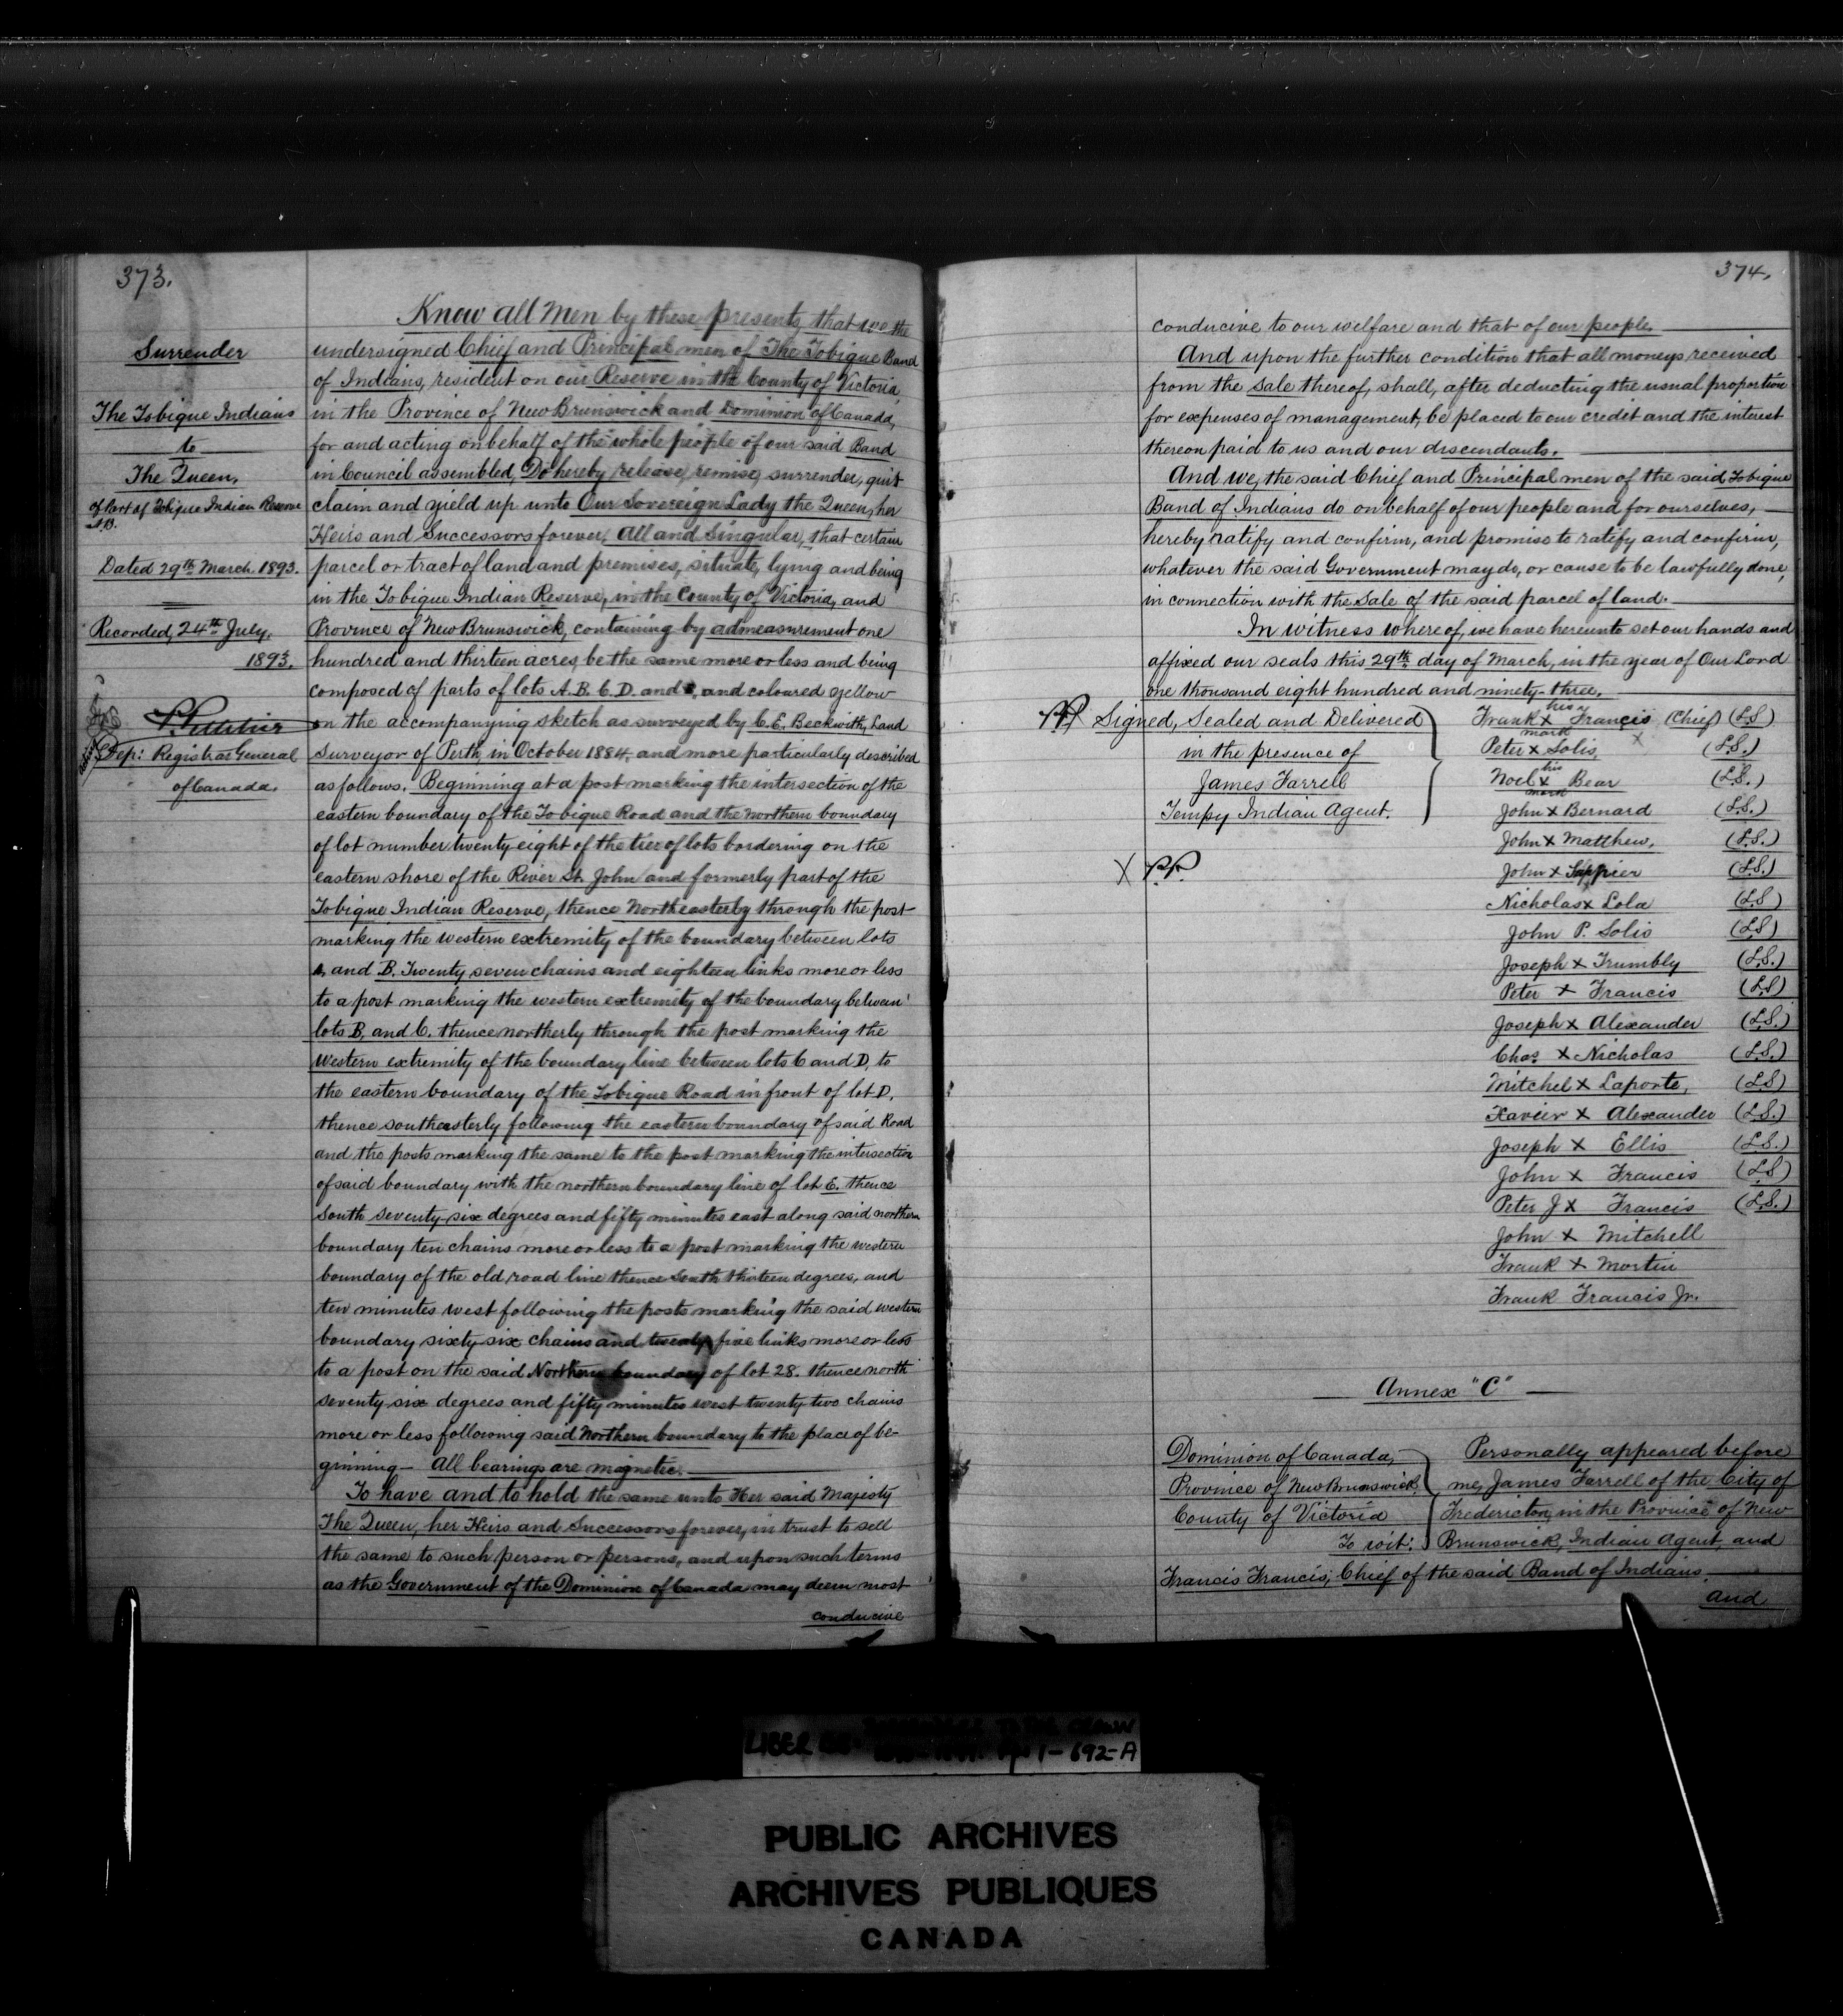 373.
Surrender
The Tobique Indians
to
The Queen,
of Part of Tobique Indian Reserve
N.B.
Dated 29th March. 1893.
Recorded, 24th July,
1893.
P. Pelletier
Dep: Registrar General
of Canada.
Know all Men by these presents, that we the
undersigned Chief and Principal men of The Tobique Band
of Indians, resident on our Reserve in the County of Victoria,
in the Province of New Brunswick and Dominion of Canada,
for and acting on behalf of the whole people of our said Band
in Council assembled, Do hereby release, remise, surrender, quit
claim and yield up unto Our Sovereign Lady the Queen, her
Heirs and Successors forever, All and Singular, that certain
parcel or tract of land and premises, situate, lying and being
in the Tobique Indian Reserve, in the County of Victoria, and
Province of New Brunswick, containing by admeasurement one
hundred and thirteen acres, be the same more or less and being
composed of parts of lots A. B. C. D. and , and coloured yellow
on the accompanying sketch as surveyed by C. E. Beckwith, Land
Surveyor of Perth, in October 1884, and more particularly described
as follows. Beginning at a post marking the intersection of the
eastern boundary of the Tobique Road and the northern boundary
of lot number twenty eight of the tier of lots bordering on the
eastern shore of the River St. John and formerly part of the
Tobique Indian Reserve, thence Northeasterly through the post
marking the western extremity of the boundary between lots
A. and B. Twenty seven chains and eighteen links more or less
to a post marking the western extremity of the boundary between
lots B, and C. thence northerly through the post marking the
Western extremity of the boundary line between lots C and D, to
the eastern boundary of the Tobique Road in front of lot D.
thence southeasterly following the eastern boundary of said Road
and the posts marking the same to the post marking the intersection
of said boundary with the northern boundary line of lot E. thence
South seventy six degrees and fifty minutes east along said northern
boundary ten chains more or less to a post marking the western
boundary of the old road line thence South thirteen degrees, and
ten minutes west following the posts marking the said western
boundary sixty six chains and twenty five links more or less
to a post on the said Northern boundary of lot 28. thence north
seventy six degrees and fifty minutes west twenty two chains
more or less following said Northern boundary to the place of be-
ginning - All bearings are magnetic.
To have and to hold the same unto Her said Majesty
The Queen, her Heirs and Successors forever, in trust to sell
the same to such person or persons, and upon such terms
as the Government of the Dominion of Canada may deem most
conducive
374.
conducive to our welfare and that of our people.
And upon the further condition that all moneys received
from the Sale thereof, shall, after deducting the usual proportion
for expenses of management, be placed to our credit and the interest
thereon paid to us and our descendants.
And we, the said Chief and Principal men of the said Tobique
Band of Indians do on behalf of our people and for ourselves,
hereby ratify and confirm, and promise to ratify and confirm,
whatever the said Government may do, or cause to be lawfully done,
in connection with the Sale of the said parcel of land.
In witness whereof, we have hereunto set our hands and
affixed our seals this 29th day of March, in the year of Our Lord
one thousand eight hundred and ninety-three.
Signed, Sealed and Delivered
in the presence of
James Farrell
Tempy Indian Agent.
X P.P.
Frank his x mark Francis (Chief) (L.S)
Peter x Solis, (L.S.)
Noel his x mark Bear (L.S.)
John x Bernard (L.S.)
John x Matthew, (L.S.)
John x Sappier (L.S)
Nicholas x Lola (L.S)
John P. Solis (L.S)
Joseph x Trumbly (L.S.)
Peter x Francis (L.S)
Joseph x Alexander (L.S.)
Chas x Nicholas (L.S.)
Mitchel x Laporte, (L.S)
Xavier x Alexander (L.S.)
Joseph x Ellis (L.S.)
John x Francis (L.S)
Peter J x Francis (L.S.)
John x Mitchell
Frank x Martin
Frank Francis Jr.
Annex "C"
Dominion of Canada,
Province of New Brunswick,
County of Victoria
To wit:
Personally appeared before
me, James Farrell of the City of
Fredericton, in the Province of New
Brunswick, Indian Agent, and
Francis Francis, Chief of the said Band of Indians.
and
LIBER
CROWN
1 - 692-A
PUBLIC ARCHIVES
ARCHIVES PUBLIQUES
CANADA